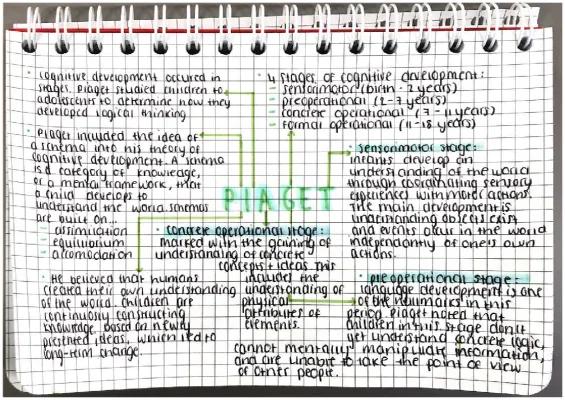 · cognitive development occured in
stages. Piaget studied children to
adolescents to determine how they
developed logical thinking
· 4 stages of cognitive development:
- sensorimotor (birth - 2 years)
- preoperational (2-7 years)
- concrete operational (7-11 years)
- formal operational (11-18 years)
· Piaget included the idea of
a schema into his theory of
cognitive development. A schema
is a category of knowledge,
or a mental framework, that
a child develops to
understand the world. schemas
are built on...
- assimilation
- equilibrium
- acomodation
· He believed that humans
created their own understanding
of the world. Children are
continuosly constructing
knowledge, based on newly
presented ideas, which led to
long-term change.
PIAGET
· concrete operational stage:
marked with the gaining of
understanding of concrete
concepts + ideas. This
includes the
understanding of
physical
attributes of
elements.
· Sensorimotor stage:
infants develop an
understanding of the world
through coordinating sensory
experiences with motor actions.
The main development is
understanding objects exist
and events occur in the world
independantly of one's own
actions.
· preoperational stage:
language development is one
of the hallmarks in this
period. Piaget noted that
children in this stage don't
yet understand concrete logic,
cannot mentally manipulate information,
and are unable to take the point of view
of other people.